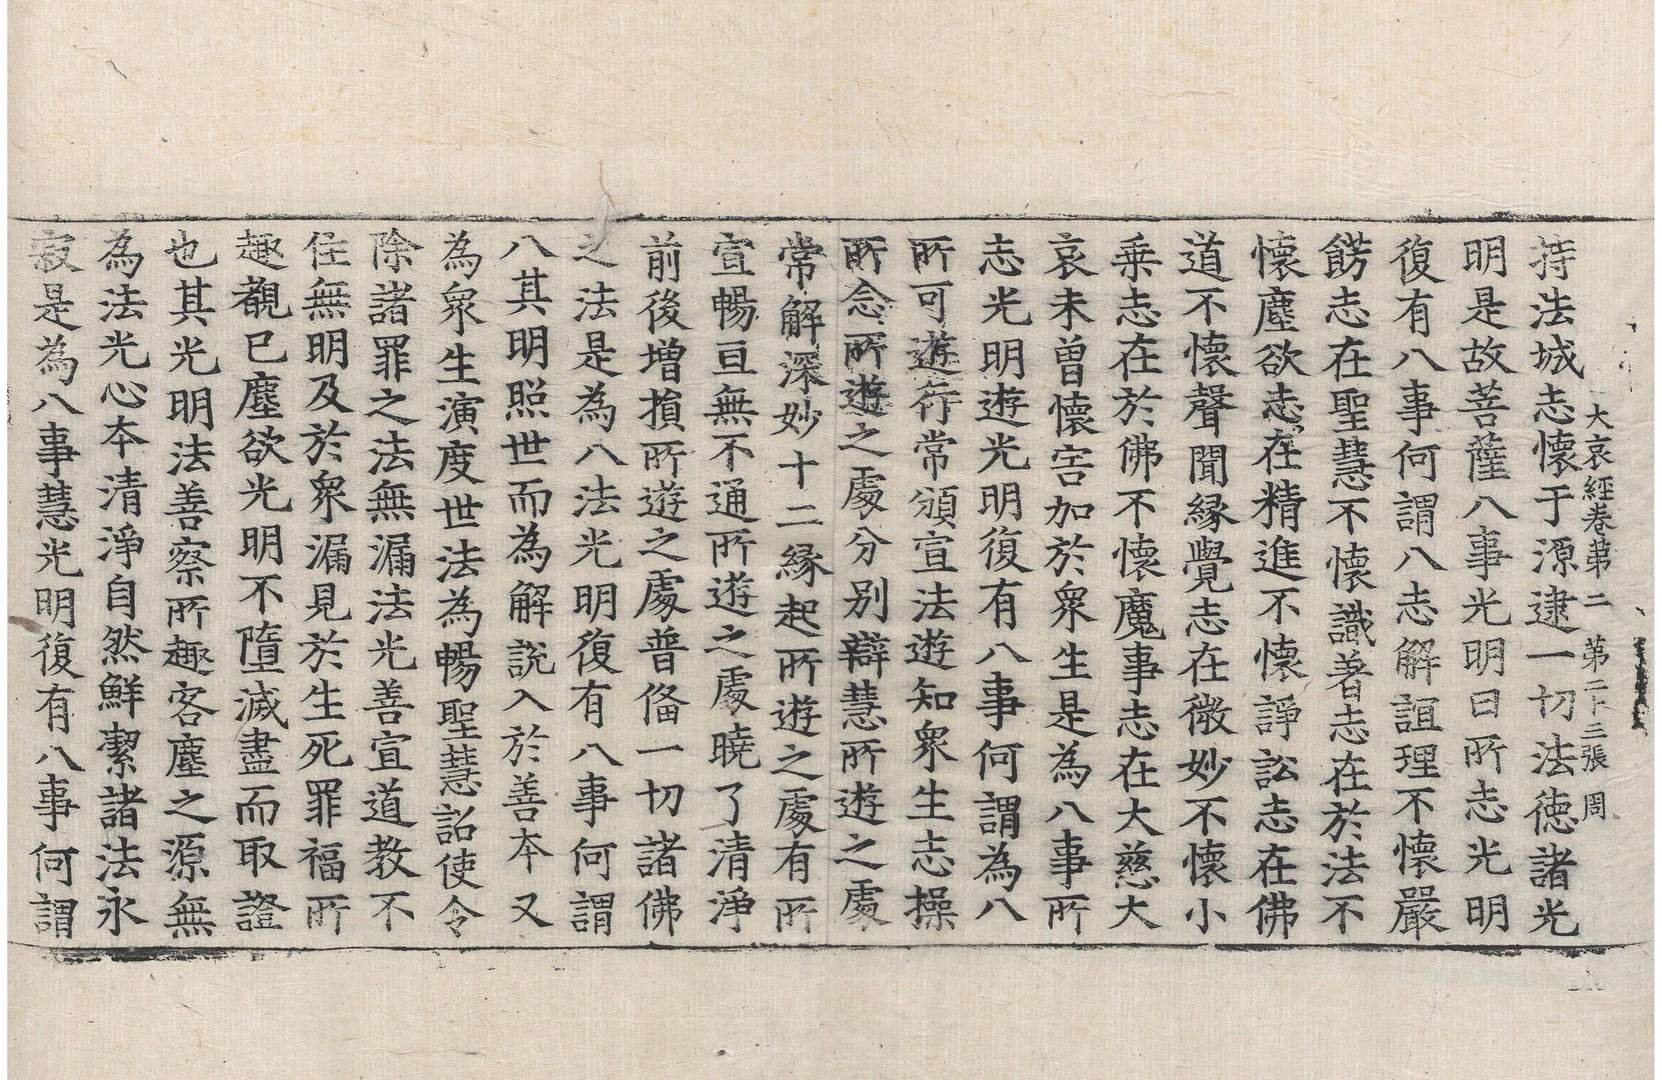 大哀經卷第二 第二十三張 周
持法城志懷于源逮一切法德諸光
明是故菩薩八事光明曰所志光明
復有八事何謂八志解誼理不懷嚴
餝志在聖慧不懷識著志在於法不
懷塵欲志在精進不懷諍訟志在佛
道不懷聲聞緣覺志在微妙不懷小
乗志在於佛不懷魔事志在大慈大
哀未曾懷害加於衆生是為八事所
志光明遊光明復有八事何謂為八
所可遊行常頒宣法遊知衆生志操
所念所遊之處分別辯慧所遊之處
常解深妙十二緣起所遊之處有所
宣暢亘無不通所遊之處曉了清淨
前後增損所遊之處普俻一切諸佛
之法是為八法光明復有八事何謂
八其明照世而為解說入於善本又
為衆生演度世法為暢聖慧詔使令
除諸罪之法無漏法光善宣道教不
住無明及於衆漏見於生死罪福所
趣覩已塵欲光明不墮滅盡而取證
也其光明法善察所趣客塵之源無
為法光心本清淨自然鮮潔諸法永
寂是為八事慧光明復有八事何謂